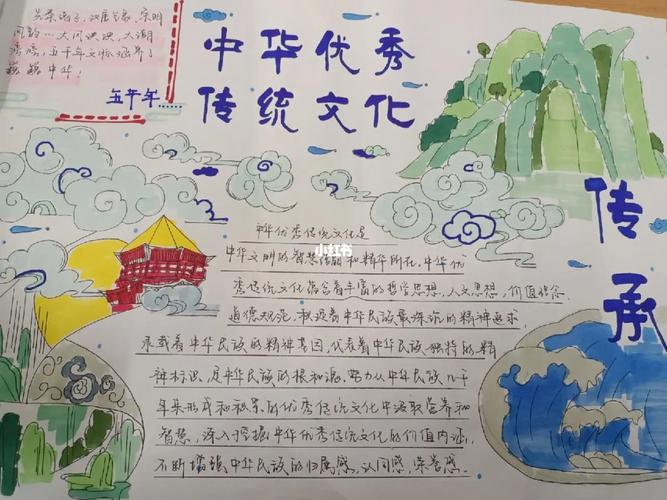 中华优秀
传统文化
五千年……
传承
中华优秀传统文化是
中华文明的智慧结晶和精华所在，中华优
小红书
秀传统文化蕴含着丰富的哲学思想、人文思想、价值信念、
道德规范，积淀着中华民族最深沉的精神追求，
承载着中华民族的精神基因，代表着中华民族独特的精
神标识，是中华民族的根和源。努力从中华民族几千
年来形成和积累的优秀传统文化中汲取营养和
智慧，深入挖掘中华优秀传统文化的价值内涵，
不断增强中华民族的归属感、认同感、荣誉感。